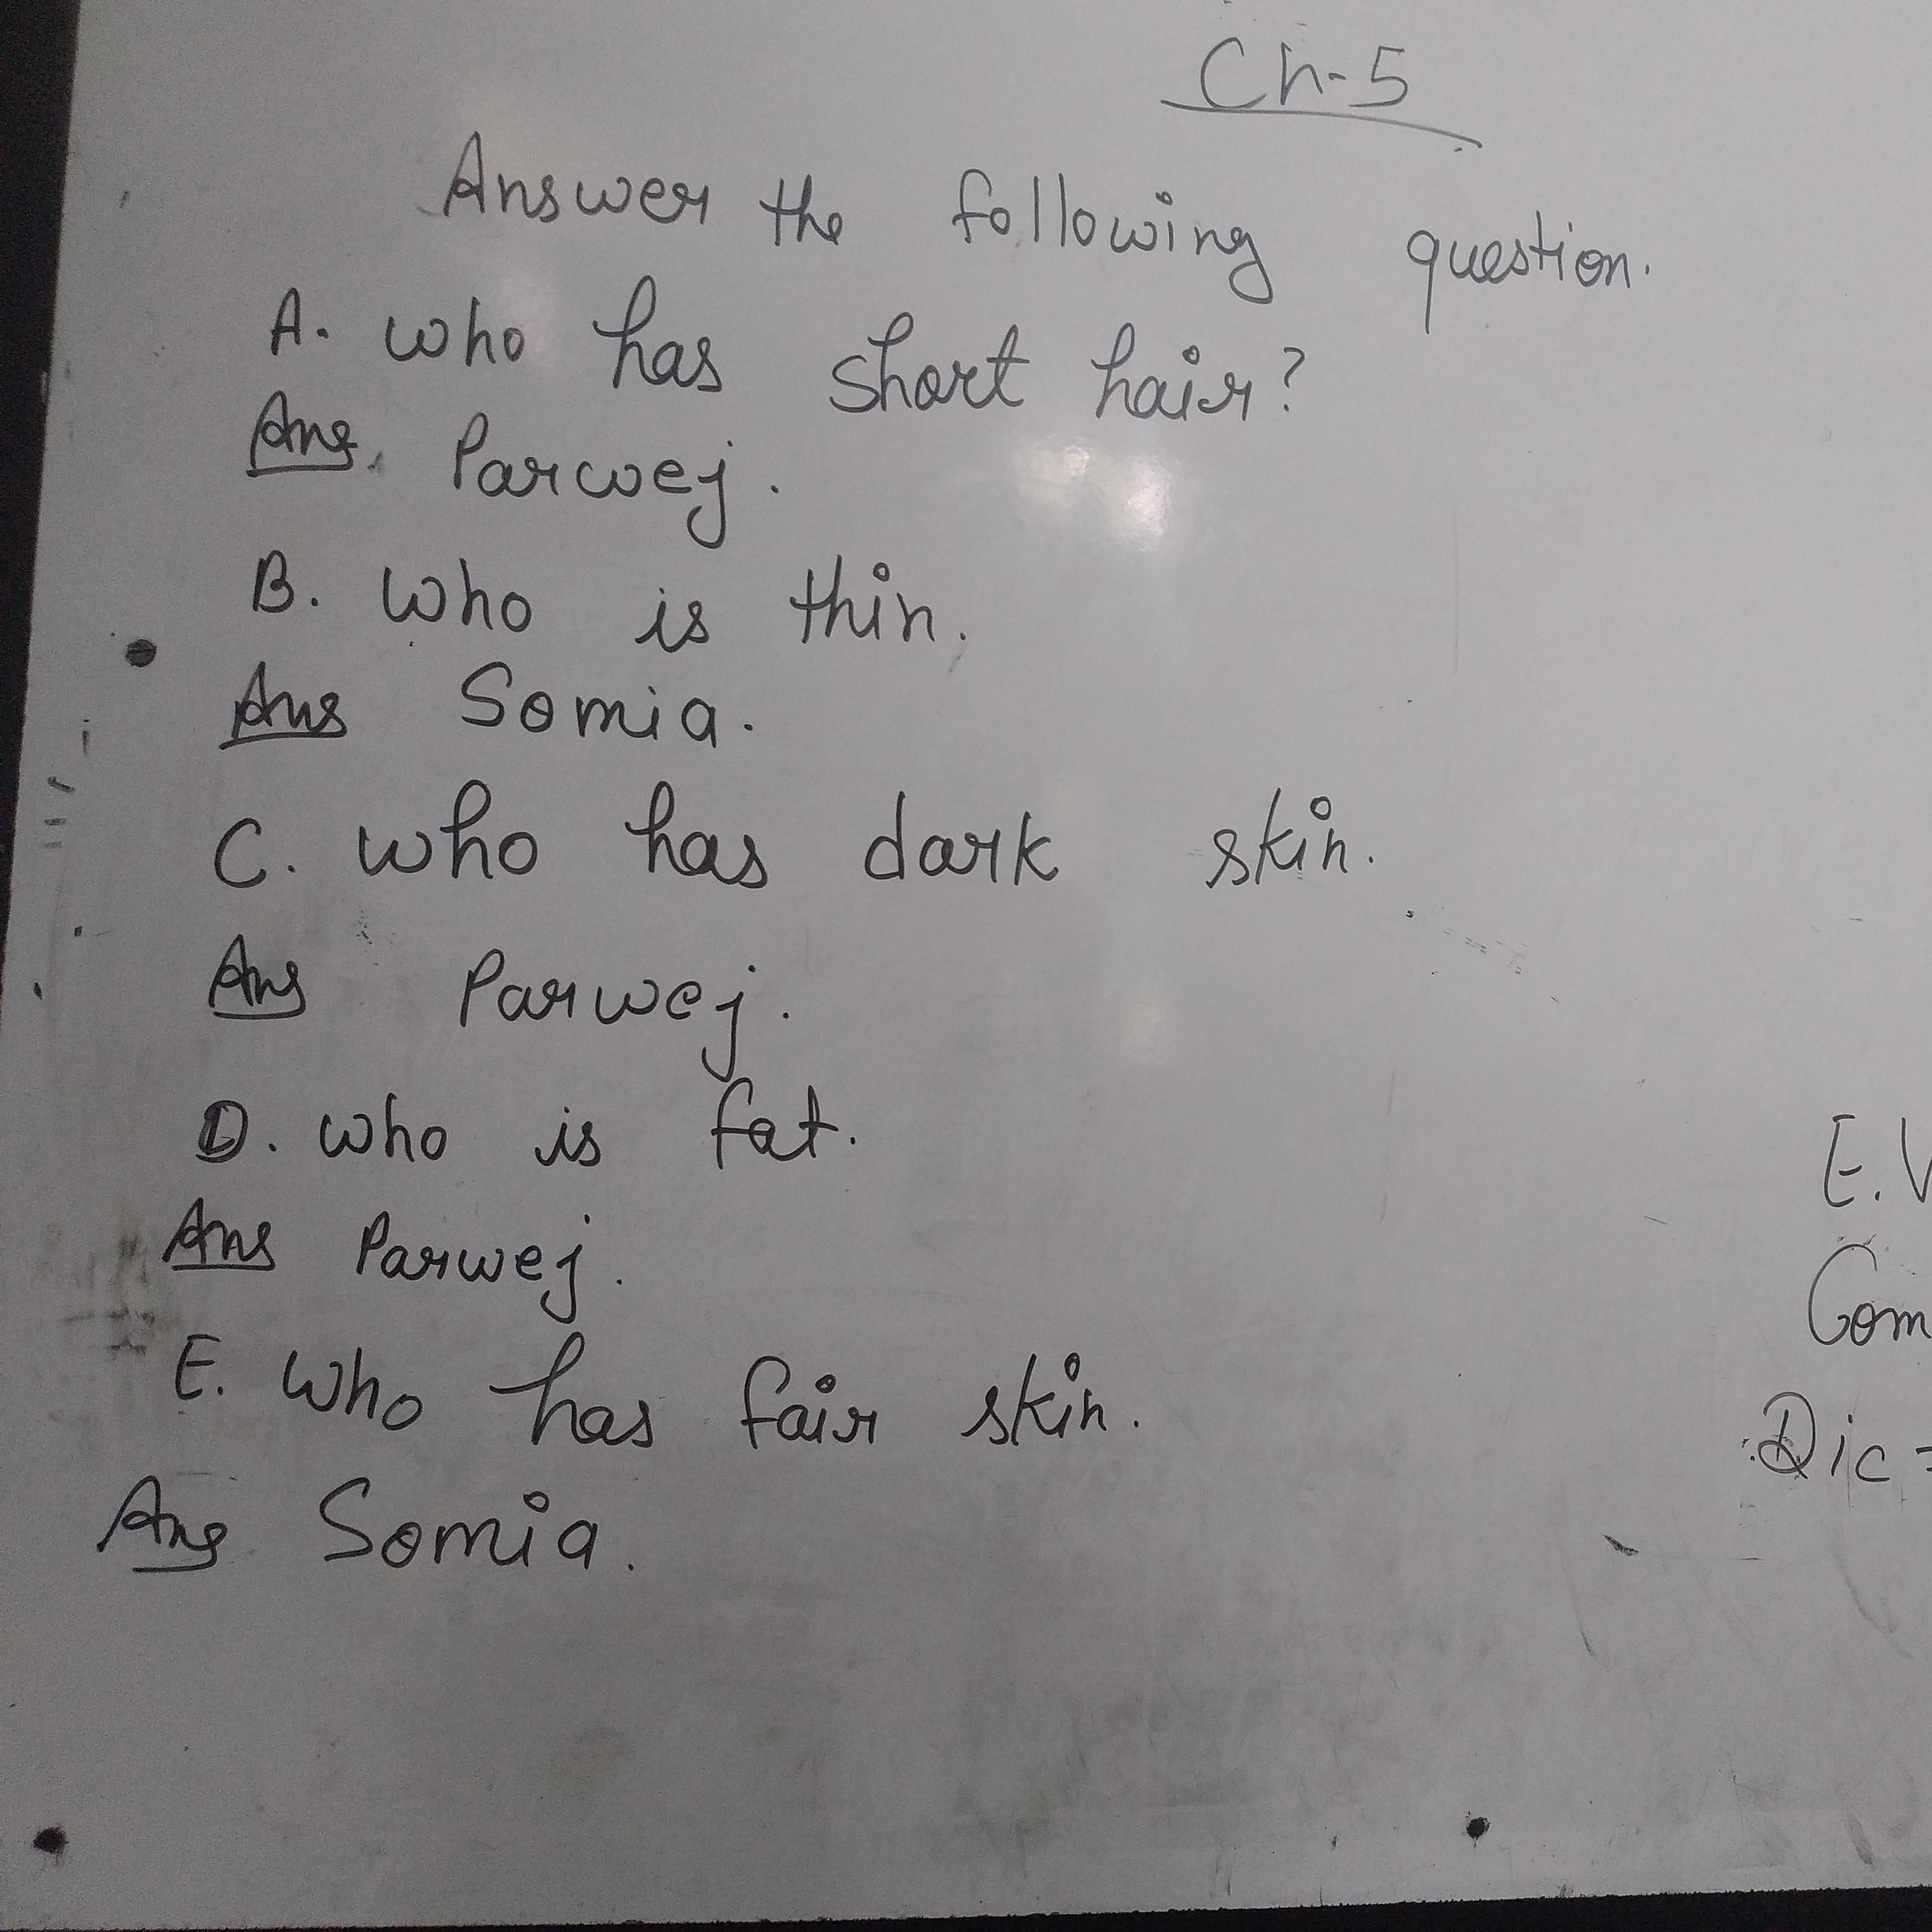 Ch-5
Answer the following question.
A. who has short hair?
Ans. Parwej.
B. Who is thin.
Ans Somia.
C. who has dark skin.
Ans Parwej.
D. who is fat.
Ans Parwej.
E. Who has fair skin.
Ans Somia.
E.V
Com
Dic =